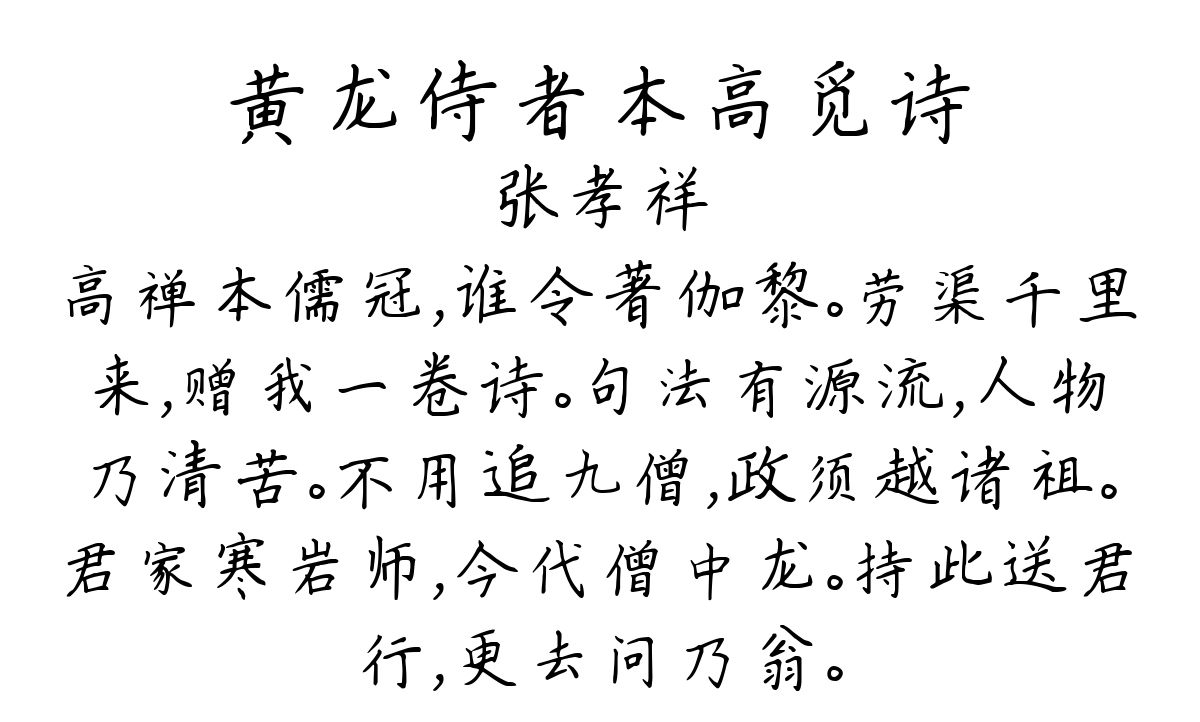 黄龙侍者本高觅诗
张孝祥
高禅本儒冠,谁令著伽黎。劳渠千里
来,赠我一卷诗。句法有源流,人物
乃清苦。不用追九僧,政须越诸祖。
君家寒岩师,今代僧中龙。持此送君
行,更去问乃翁。